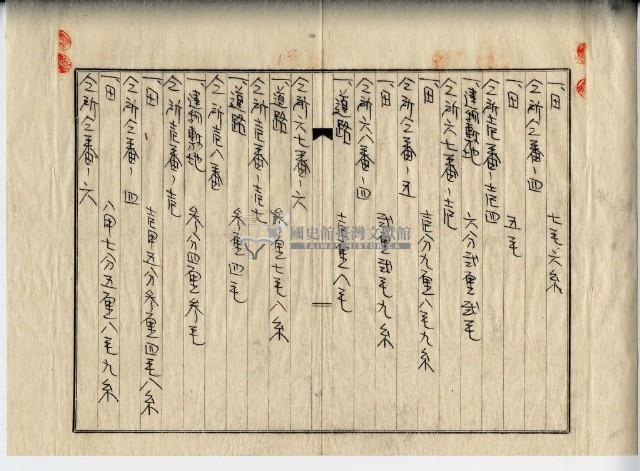 一、田　七毛六糸
仝所仝番ノ四
一、田　五毛
仝所壱番ノ壱四
一、建物敷地　六分弐厘弐毛
仝所六七番ノ壱
一、田　壱分九厘八毛九糸
仝所仝番ノ五
一、田　弐厘弐毛九糸
仝所六八番ノ四
一、道路　壱厘八毛
仝所六七番ノ六
一、道路　参厘七毛八糸
仝所壱番ノ壱七
一、道路　参厘四毛
仝所壱八番
一、建物敷地　参分四厘参毛
仝所壱番ノ壱
一、田　壱甲五分参厘四毛八糸
仝所仝番ノ四
一、田　八甲七分五厘八毛九糸
仝所仝番ノ六
國史館臺灣文獻館
TAIWAN HISTORICA